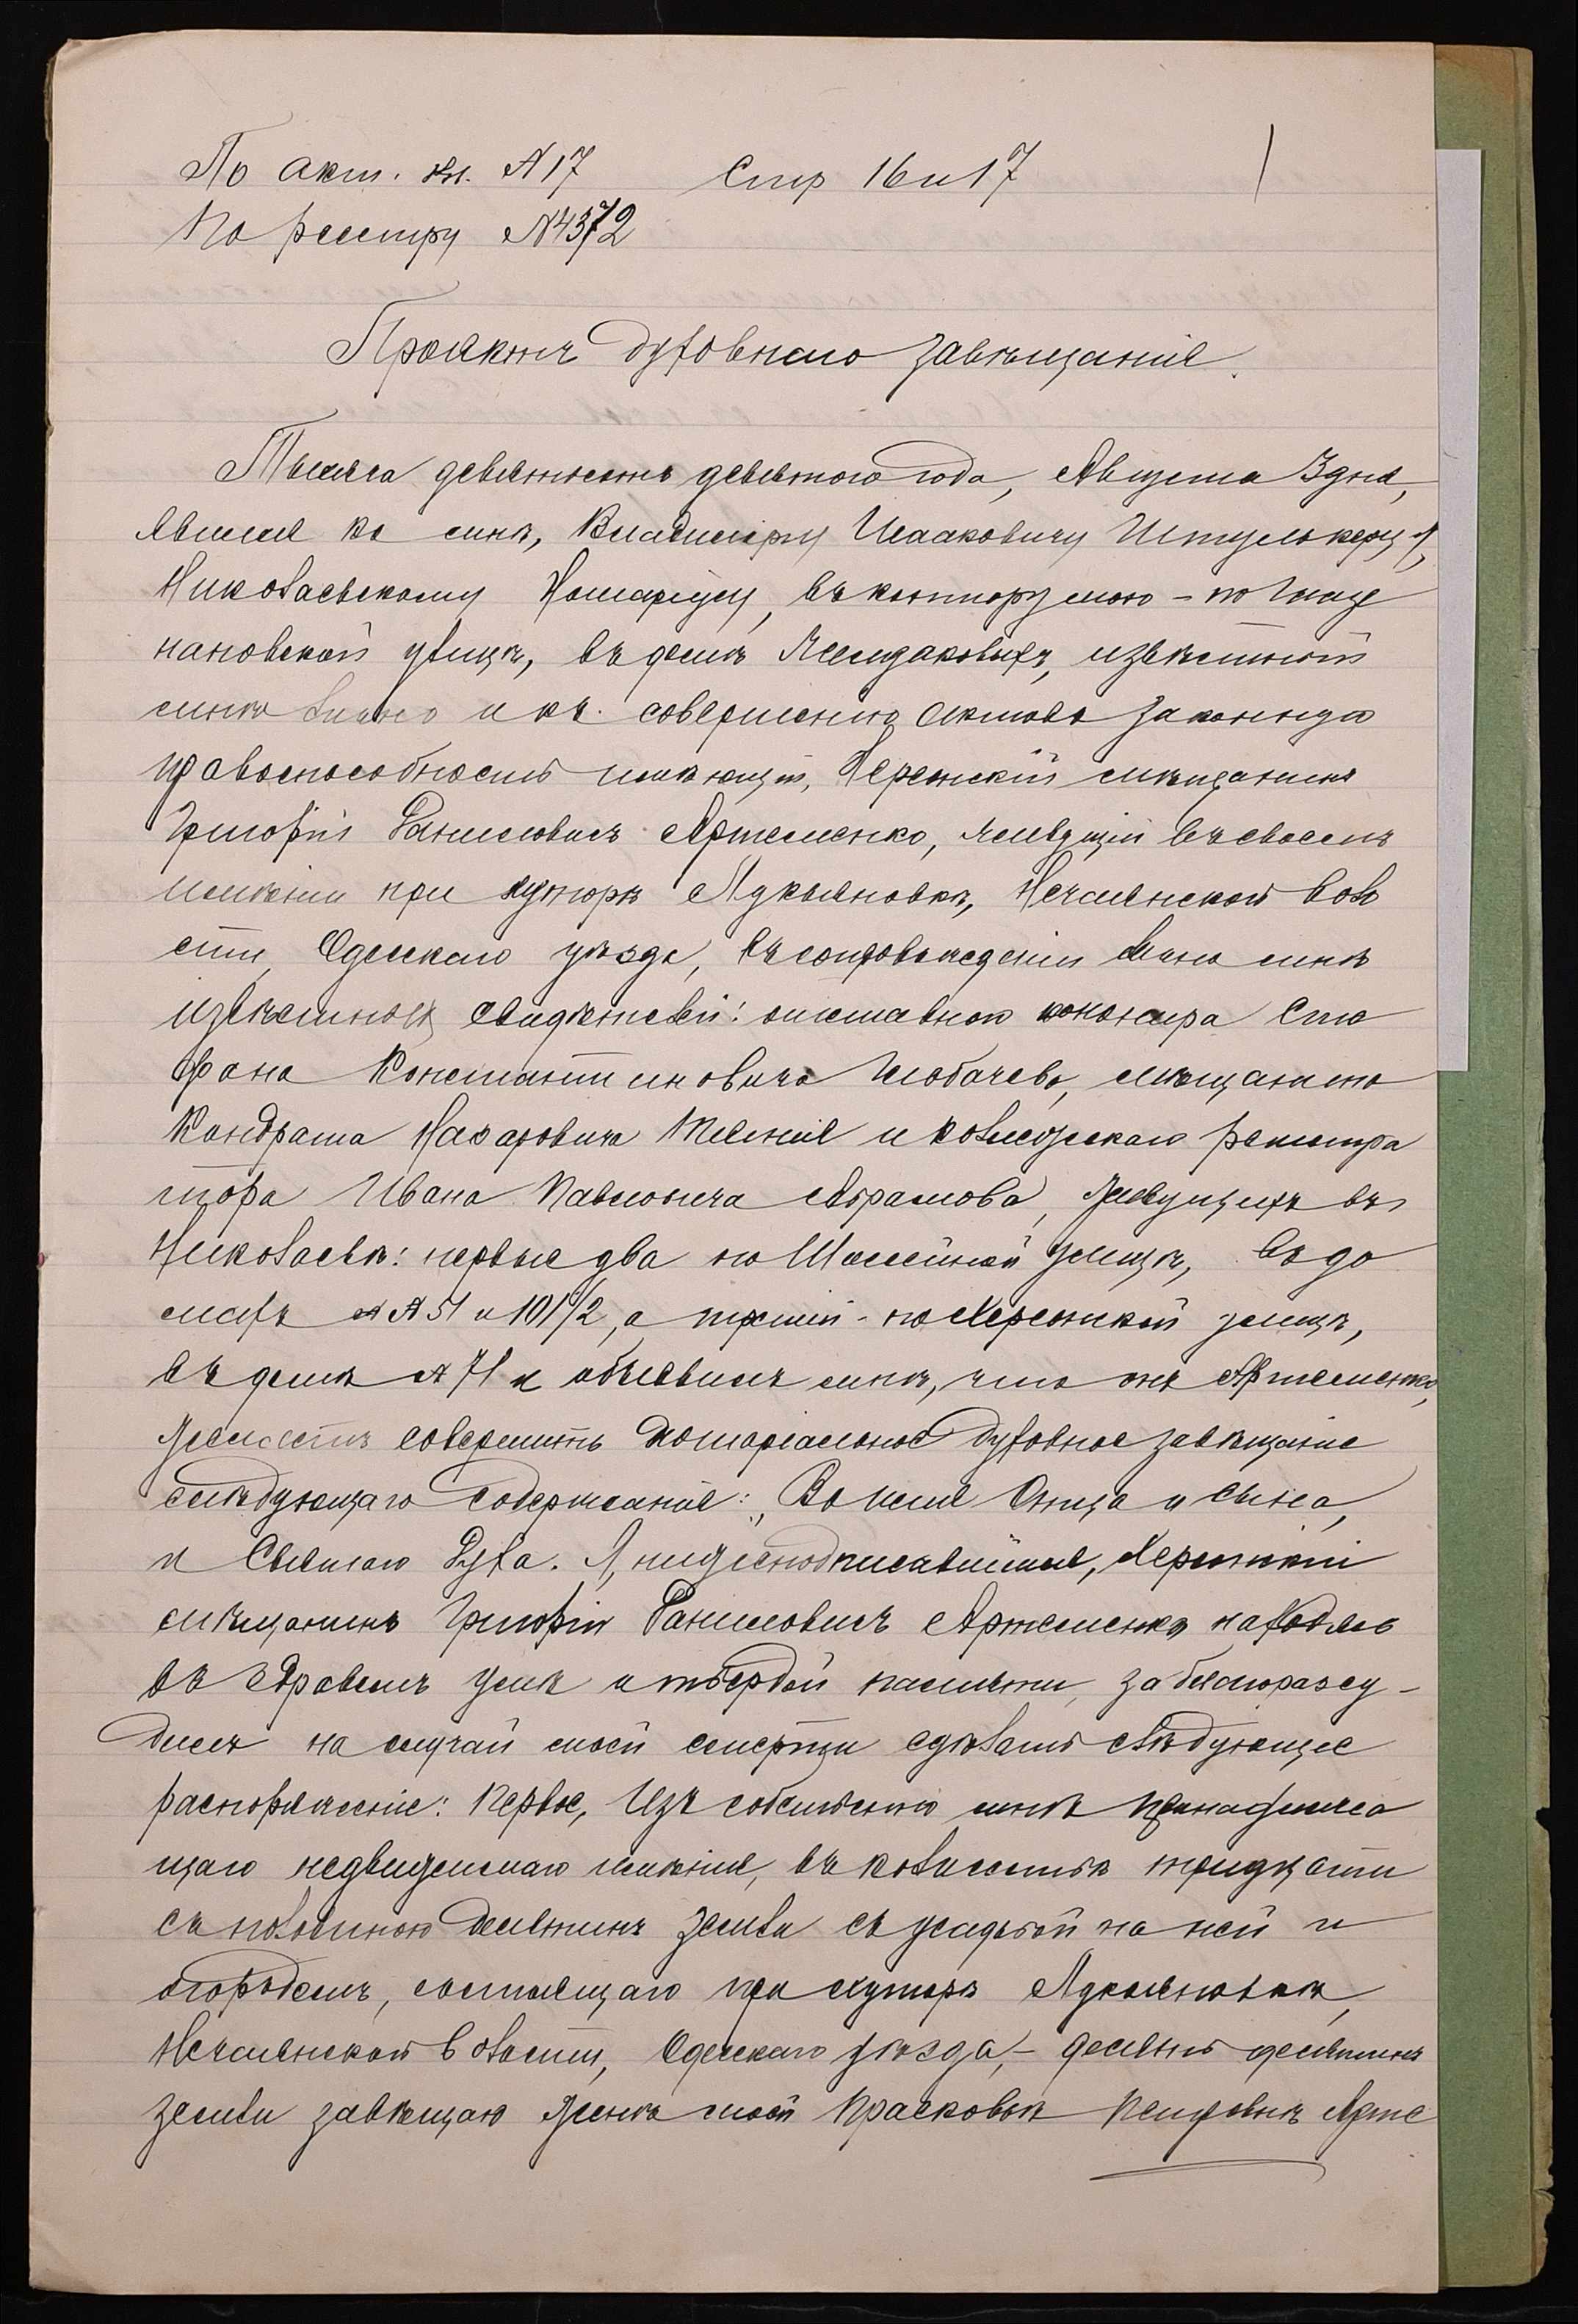 По акт. кн. № 17 Стр 16 и 17
По реестру № 4372
Проэктъ духовнаго завѣщанія.
Тысяча девятьсотъ девятого года, Августа 3 дня,
явился ко мнѣ, Владиміру Исааковичу
Николаевскому Нотаріусу, въ контору мою – по
нановской улицѣ, въ домѣ извѣстный
мнѣ лично и къ совершенію актовъ законную
правоспособность имѣющій, Херсонскій мѣщанинъ
Григорій Даниловичъ Артеменко, живущій въ своемъ
имѣніи при хуторѣ Лукьяновкѣ, Нечаянской воло
сти, Одесскаго уѣзда, въ сопровожденіи лично мнѣ
извѣстныхъ свидѣтелей: отставного Сте
фана Константиновича мѣщанина
Кондрата Назаровича и коллежскаго регистра
тора Ивана Павловича Абрамова, живущихъ въ
Николаевѣ: первые два по улицѣ, въ до
махъ №№ 51 и 101/2, а третій – по Херсонской улицѣ,
въ домѣ № 71 и объявилъ мнѣ, что онъ Артеменко,
желаетъ совершить нотаріальное духовное завѣщаніе
слѣдующаго содержанія: „Во имя Отца и Сына,
и Святаго Духа. Я, нижеподписавшійся, Херсонскій
мѣщанинъ Григорій Даниловичъ Артеменко находясь
въ здравомъ умѣ и твердой памяти, заблагоразсу-
дилъ на случай моей смерти сдѣлать слѣдующее
распоряженіе: Первое, Изъ собственно мнѣ принадлежа
щаго недвижимаго имѣнія, въ количествѣ тридцати
съ половиною десятинъ земли съ усадьбой на ней и
огородомъ, состоящаго при хуторѣ Лукьяновкѣ,
Нечаянской волости, Одесскаго уѣзда, – десять десятинъ
земли завѣщаю женѣ моей Прасковьѣ Петровнѣ Арте